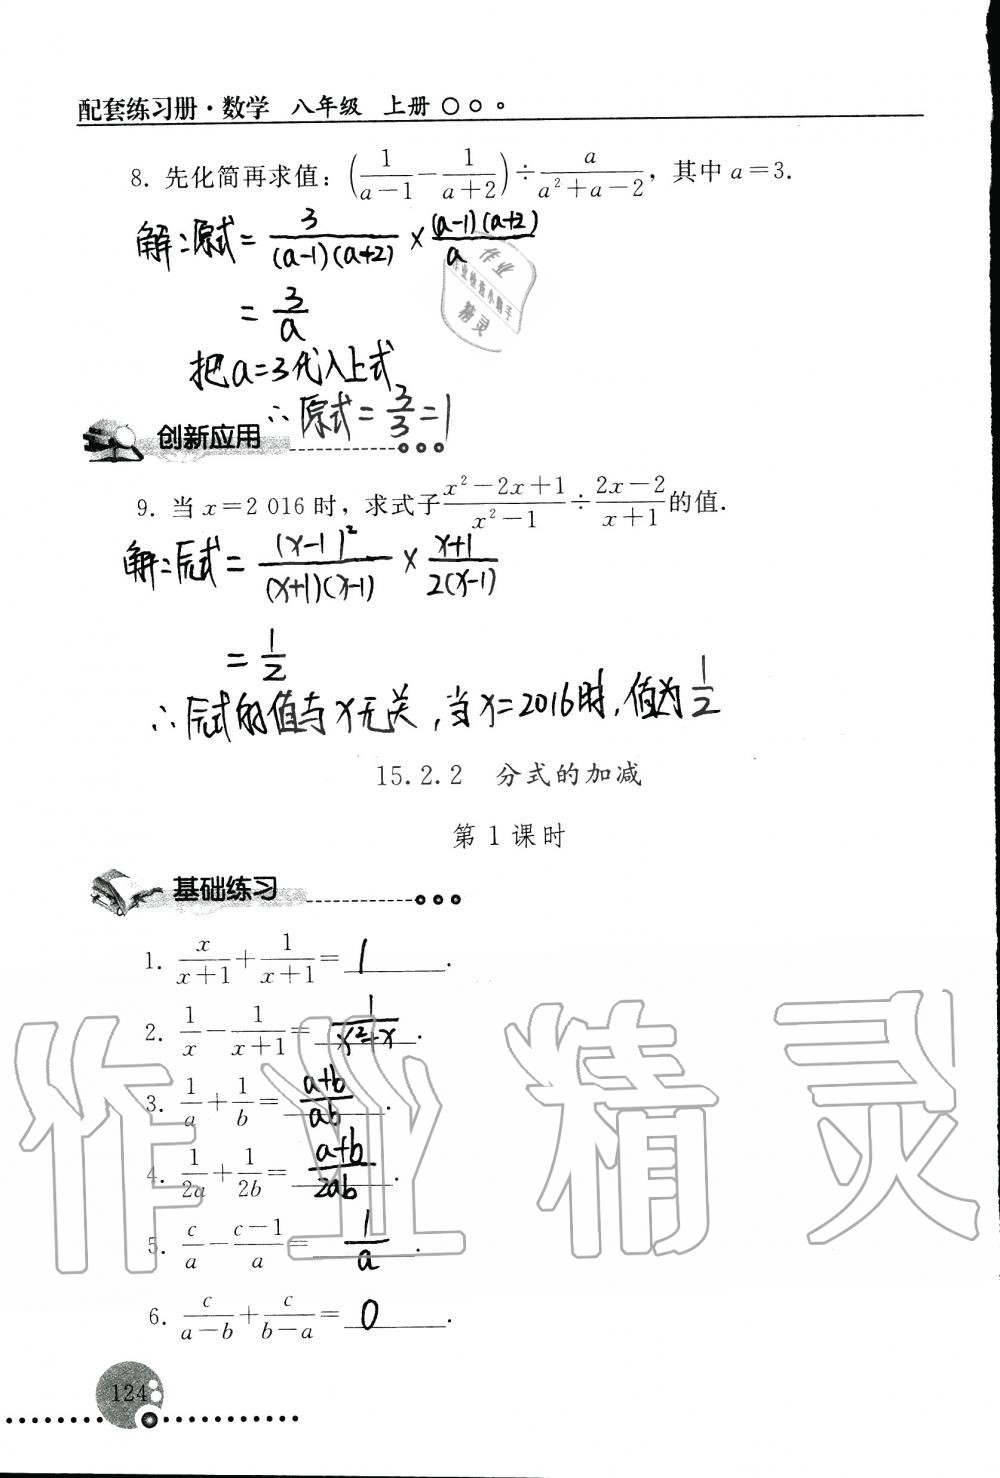 配套练习册·数学 八年级 上册
8. 先化简再求值：(1/(a-1) - 1/(a+2)) ÷ a/(a²+a-2)，其中 a=3.
解：原式 = 3/((a-1)(a+2)) × (a-1)(a+2)/a
= 3/a
把a=3代入上式
∴原式 = 3/3 = 1
创新应用
9. 当 x=2 016 时，求式子 (x²-2x+1)/(x²-1) ÷ (2x-2)/(x+1) 的值.
解：原式 = (x-1)²/((x+1)(x-1)) × (x+1)/(2(x-1))
= 1/2
∴原式的值与x无关，当x=2016时，值为1/2
15.2.2 分式的加减
第 1 课时
基础练习
1. x/(x+1) + 1/(x+1) = 1.
2. 1/x - 1/(x+1) = 1/(x²+x).
3. 1/a + 1/b = (a+b)/ab.
4. 1/2a + 1/2b = (a+b)/2ab.
5. c/a - (c-1)/a = 1/a.
6. c/(a-b) + c/(b-a) = 0.
124
作业
作业检查小助手
精灵
作业精灵